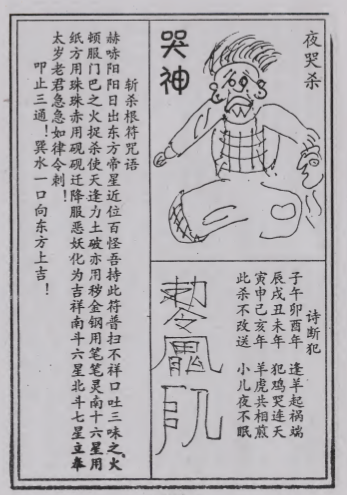 夜哭杀
哭神
诗断犯
子午卯酉年 逢羊起祸端
辰戌丑未年 犯鸡哭连天
寅申己亥年 羊虎共相煎
此杀不改送 小儿夜不眠
斩杀根符咒语
赫哧阳阳日出东方帝星近位百怪吾持此符普扫不祥口吐三味之火
顿服门巴之火捉杀使天逢力土破亦用移金钢用笔笔灵南十六星用
纸方用珠珠赤用砚砚迁降服恶妖化为吉祥南斗六星北斗七星立奉
太岁老君急急如律令刺！
叩止三通！巽水一口向东方上吉！